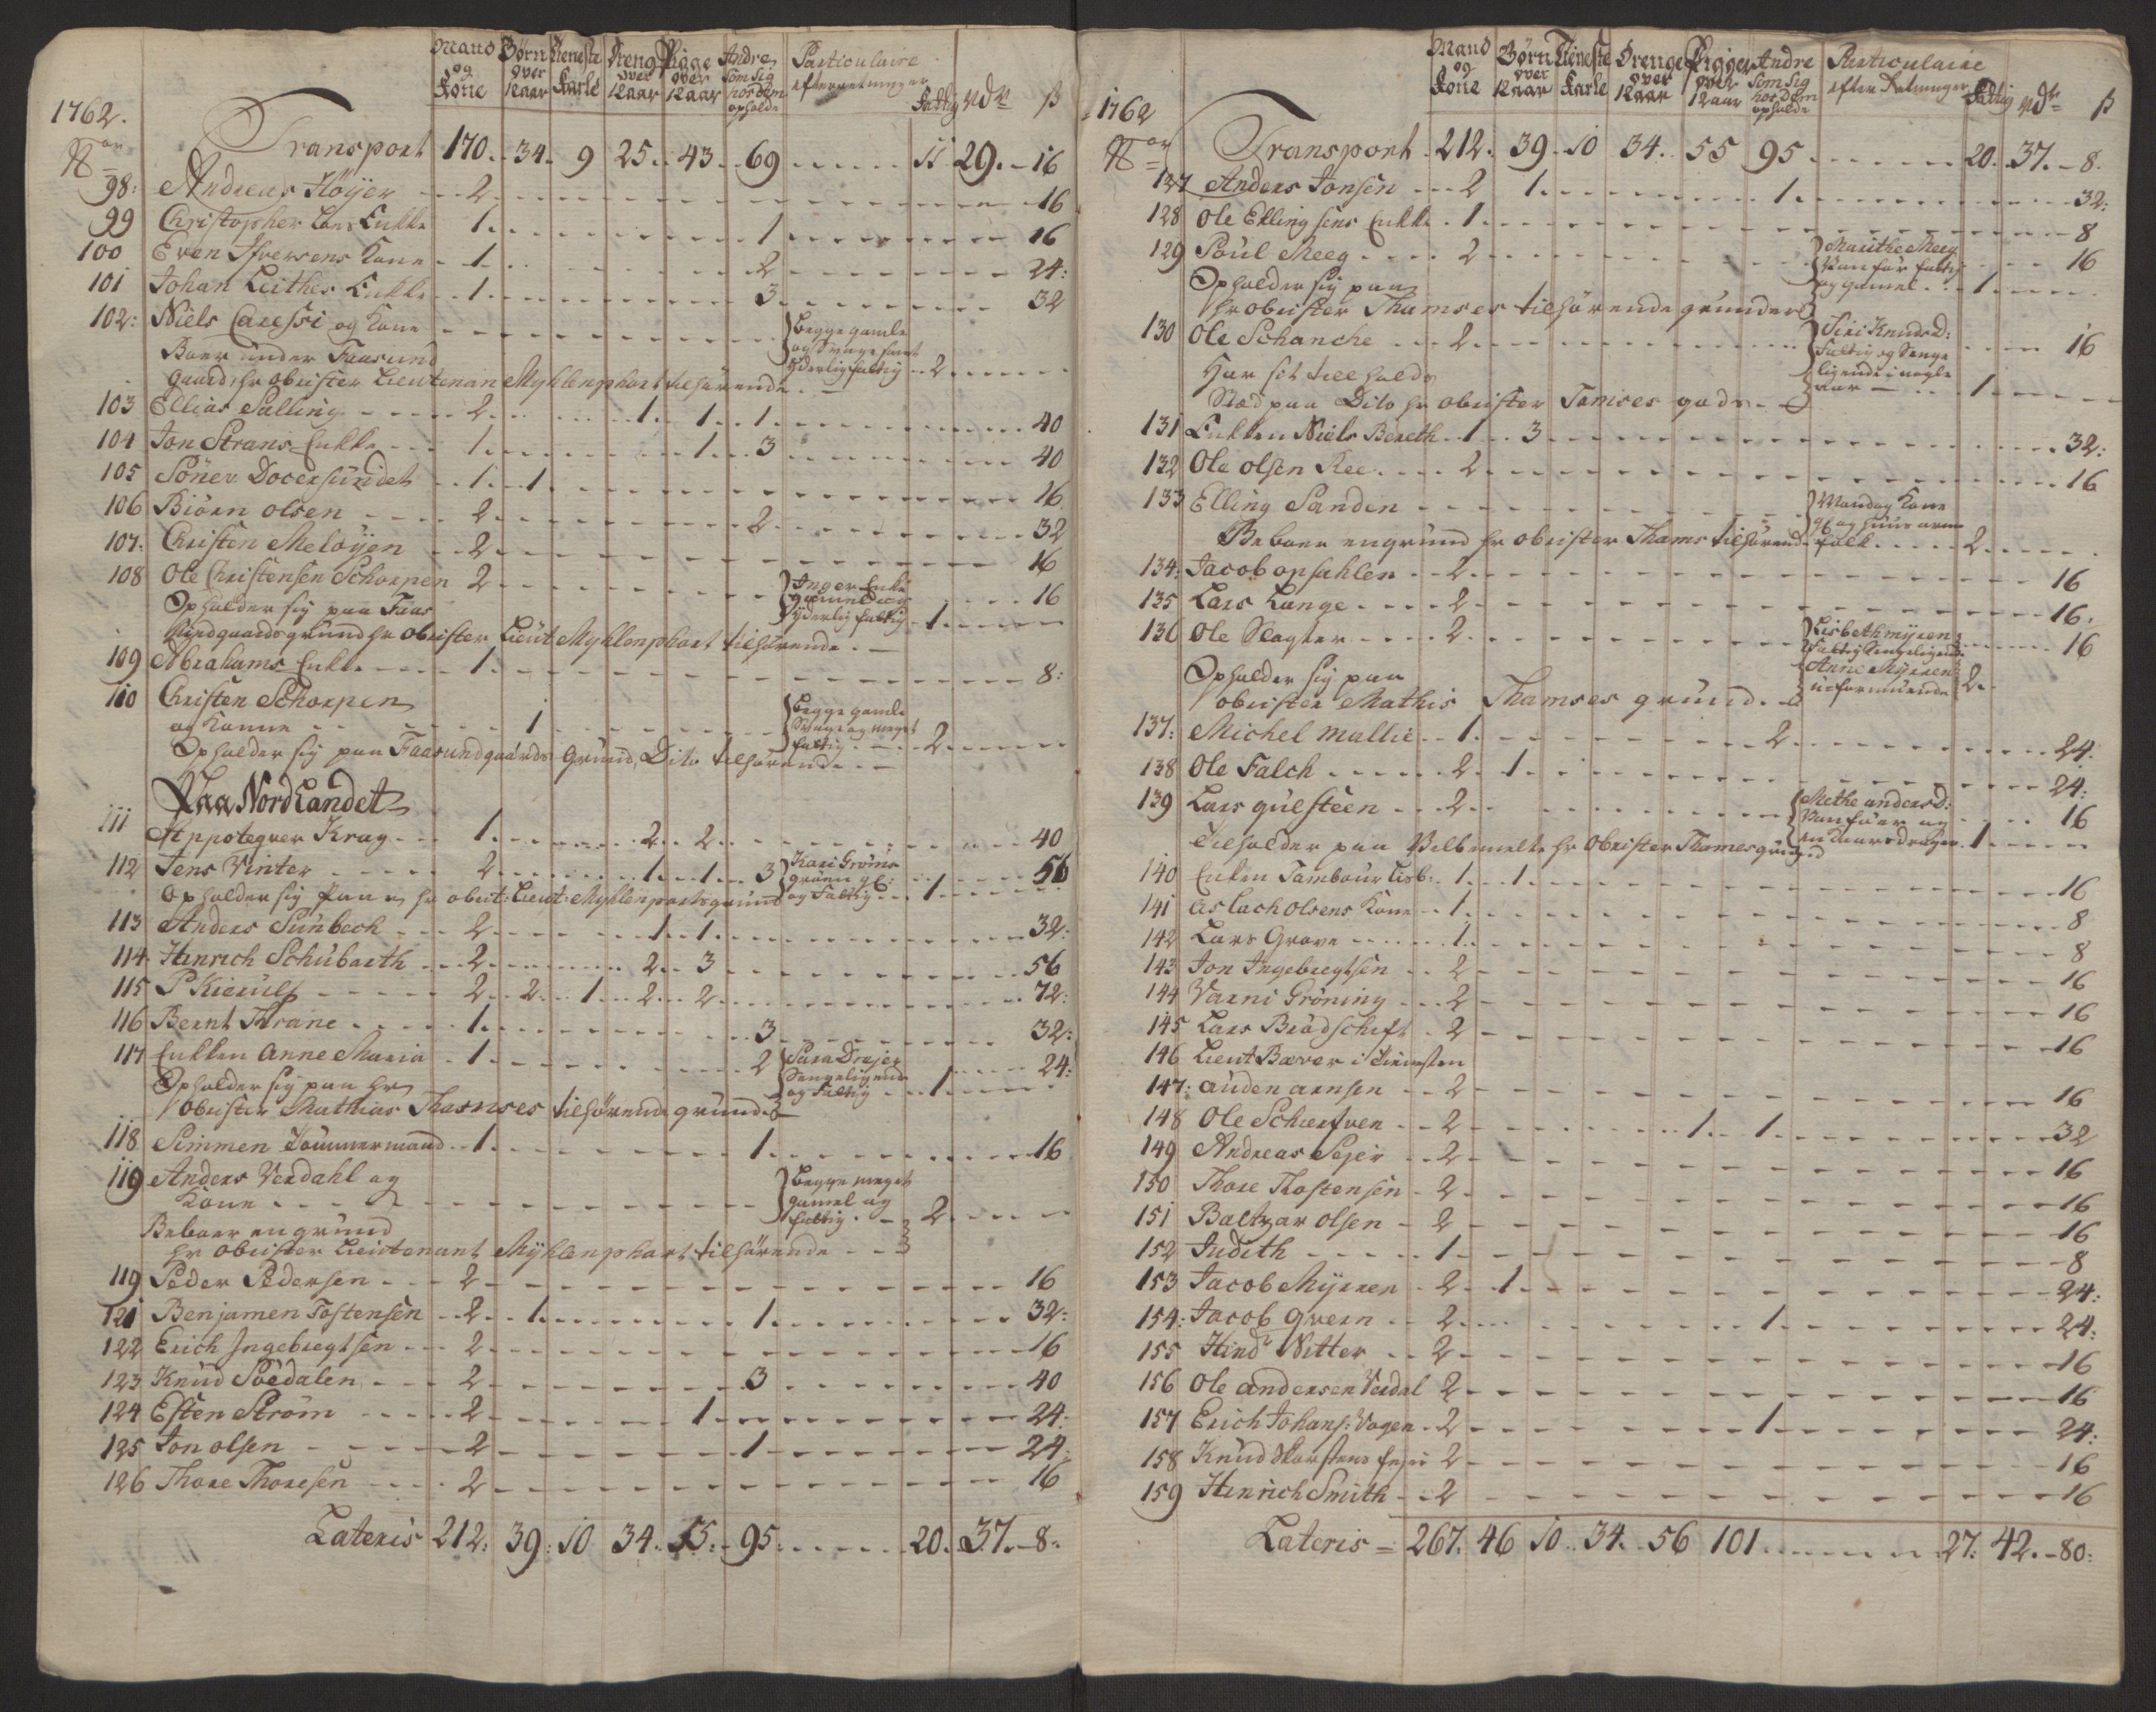 1762.
Mand og Kone Børn over 12 aar Tieneste Karle Dreng over 12 aar Pige over 12 aar Andre som sig hos dem opholde Particulaire efterretninger Fattig Rdr ß
No Transport 170. 34. 9 25. 43. 69 11 29. 16
98: Andreas Höyer 2 16
99 Christopher Lars Enkke 1. 1 16
100 Even Ifversens Kone 1 2 24:
101 Johan Leithes Enkke 1 3 32
102: Niels Caressi og Kone } begge gamle
og Svage samt
Boer under Faasund yderlig fattig 2
gaard hr obrister Lieutenan Myhlenphort tilhørende
103 Ellias Salling 2 1. 1. 1 40
104 Jon Strans Enkke 1. 1 3 40
105 Söner Docersundet 1. 1 16
106 Biörn olsen 2 2 32
107: Christen Meloÿen 2 16
108 Ole Christensen Schorpen 2 } Inger Enke 16
gammel og
Opholder sig paa Faas yderlig fattig 1
sundgaards grund hr obrister Lieut Myhlenphort tilhørende
109 Abrahams Enkke 1 8:
110 Christen Schorpen } begge gamle
og Konne 1 Svag og meget
fattig 2
Opholder sig paa Faasundgaards Grund, Dito tilhørende
Paa Nordlandet
111 Appoteqver Krag 1. 2. 2 40
112 Jens Vinter 2 1. 1. 3 } Kari Gröns 56
grönn gl:
Opholder sig paa hr obrist: Lieut: Myhlenports grund og Fattig 1
113 Anders Sünbech 2 1. 1 32:
114. Hinrich Schübarth 2 2. 3 56
115 P Kierülf 2. 2. 1. 2. 2 72:
116 Bernt Thrane 1. 3 32:
117 Enkken Anne Maria 1 2 } Sara Drejer 24:
Sengeligende
Opholder sig paa hr og Fattig 1
obrister Mathias Thamses tilhørende grund
118 Simmen Tömmermand 1. 1 16
119 Anders Verdahl og } begge meget
Kone gamel og
fattig. 2
Beboer en grund
hr obrister Lieutenant Myhlenphort tilhørende
119 Peder Pedersen 2 16
121 Benjamen Tostensen 2. 1. 1 32:
122 Erich Ingebregtsen 2 16
123 Knud Söedalen 2 3 40
124 Esten Ström 2 1 24:
125 Jon olsen 2 1 24:
126 Thore Thoresen 2 16
Lateris 212: 39: 10 34. 55. 95. 20. 37. 8.
1762
Mand og Kone Børn over 12 aar Tieneste Karle Drenge over 12 aar Piger over 12 aar Andre som sig hos Dem opholde Particulaire efter Retninger Fattig Rdr ß
No Transport 212. 39. 10 34. 55 95. 20. 37. 8.
127 Anders Jonsen 2 1. 1. 32:
128 Ole Ellingsens Enkke 1. 8
129 Poul Meeg 2 } Marithe Meeg 16
Vanfør fattig
Opholder sig paa og gamel 1.
hr obrister Thamses tilhørende grunder
130 Ole Schanche 2 } Siri Knudsd: 16
Fattig og Senge
Har sit tillholds ligende i nogle
aar 1
Stæd paa Dito hr obrister Tamses gods
131 Enkken Niels Bereth 1. 3 32:
132 Ole olsen Ree 2 16
133 Elling Sanden } Mand og Kone
gl: og huus arme
Beboer en grund hr obrister Thams tilhørende folk 2
134: Jacob opsahlen 2 16
135 Lars Lange 2 16.
136 Ole Slagter 2 } Lisbeth myren 16
Fattig Sengeligende
Opholder sig paa Anne Myren
uformuende 2.
obrister Mathis Thamses grund.
137: Michel mallie 1. 2 24.
138 Ole Falch 2. 1 24:
139 Lars gülsteen 2 } Methe andersd: 16
Vanför og
Tilholder paa Velbemelte hr Obrister Thamses grund 1
140 Enken Tambour Lisb: 1. 1 16
141 aslach olsens Kone 1. 8
142 Lars Grove 1. 8
143 Jon Ingebregtsen 2 16
144 Varni Gröning 2 16
145 Lars Brödschift 2 16
146 Lieut Bæver i tienesten
147: auden arnsen 2 16
148 Ole Schierfven 2 1. 1 32
149 Andreas Sejer 2 16
150 Thore Thostensen 2 16
151 Baltzar olsen 2 16
152 Judith 1 8
153 Jacob Myren 2. 1 24:
154: Jacob qvern 2. 1 24:
155 Hindr Nitter 2 16
156 Ole andersen Verdal 2 16
157 Erich Johans: Vogen 2 1 24:
158 Knud Skorstens fejer 2 16
159 Hinrich Smith 2 16
Lateris = 267. 46 10. 34. 56 101. 27: 42. 80: